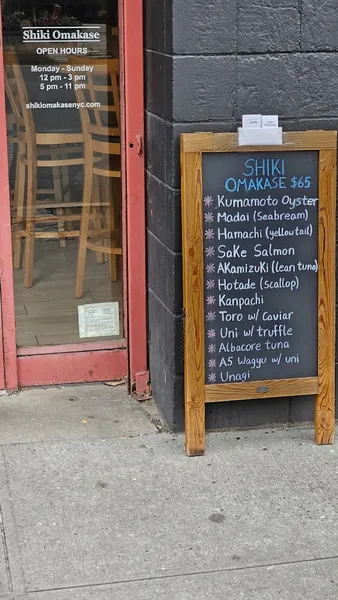 Shiki Omakase
OPEN HOURS
Monday - Sunday
12 pm - 3 pm
5 pm - 11 pm
shikiomakasenyc.com
SHIKI
OMAKASE $65
Kumamoto Oyster
Madai (Seabream)
Hamachi (yellowtail)
Sake Salmon
AKamizuki (lean tuna)
Hotade (scallop)
Kanpachi
Toro w/ Caviar
Uni w/ truffle
Albacore tuna
A5 Wagyu w/ uni
Unagi